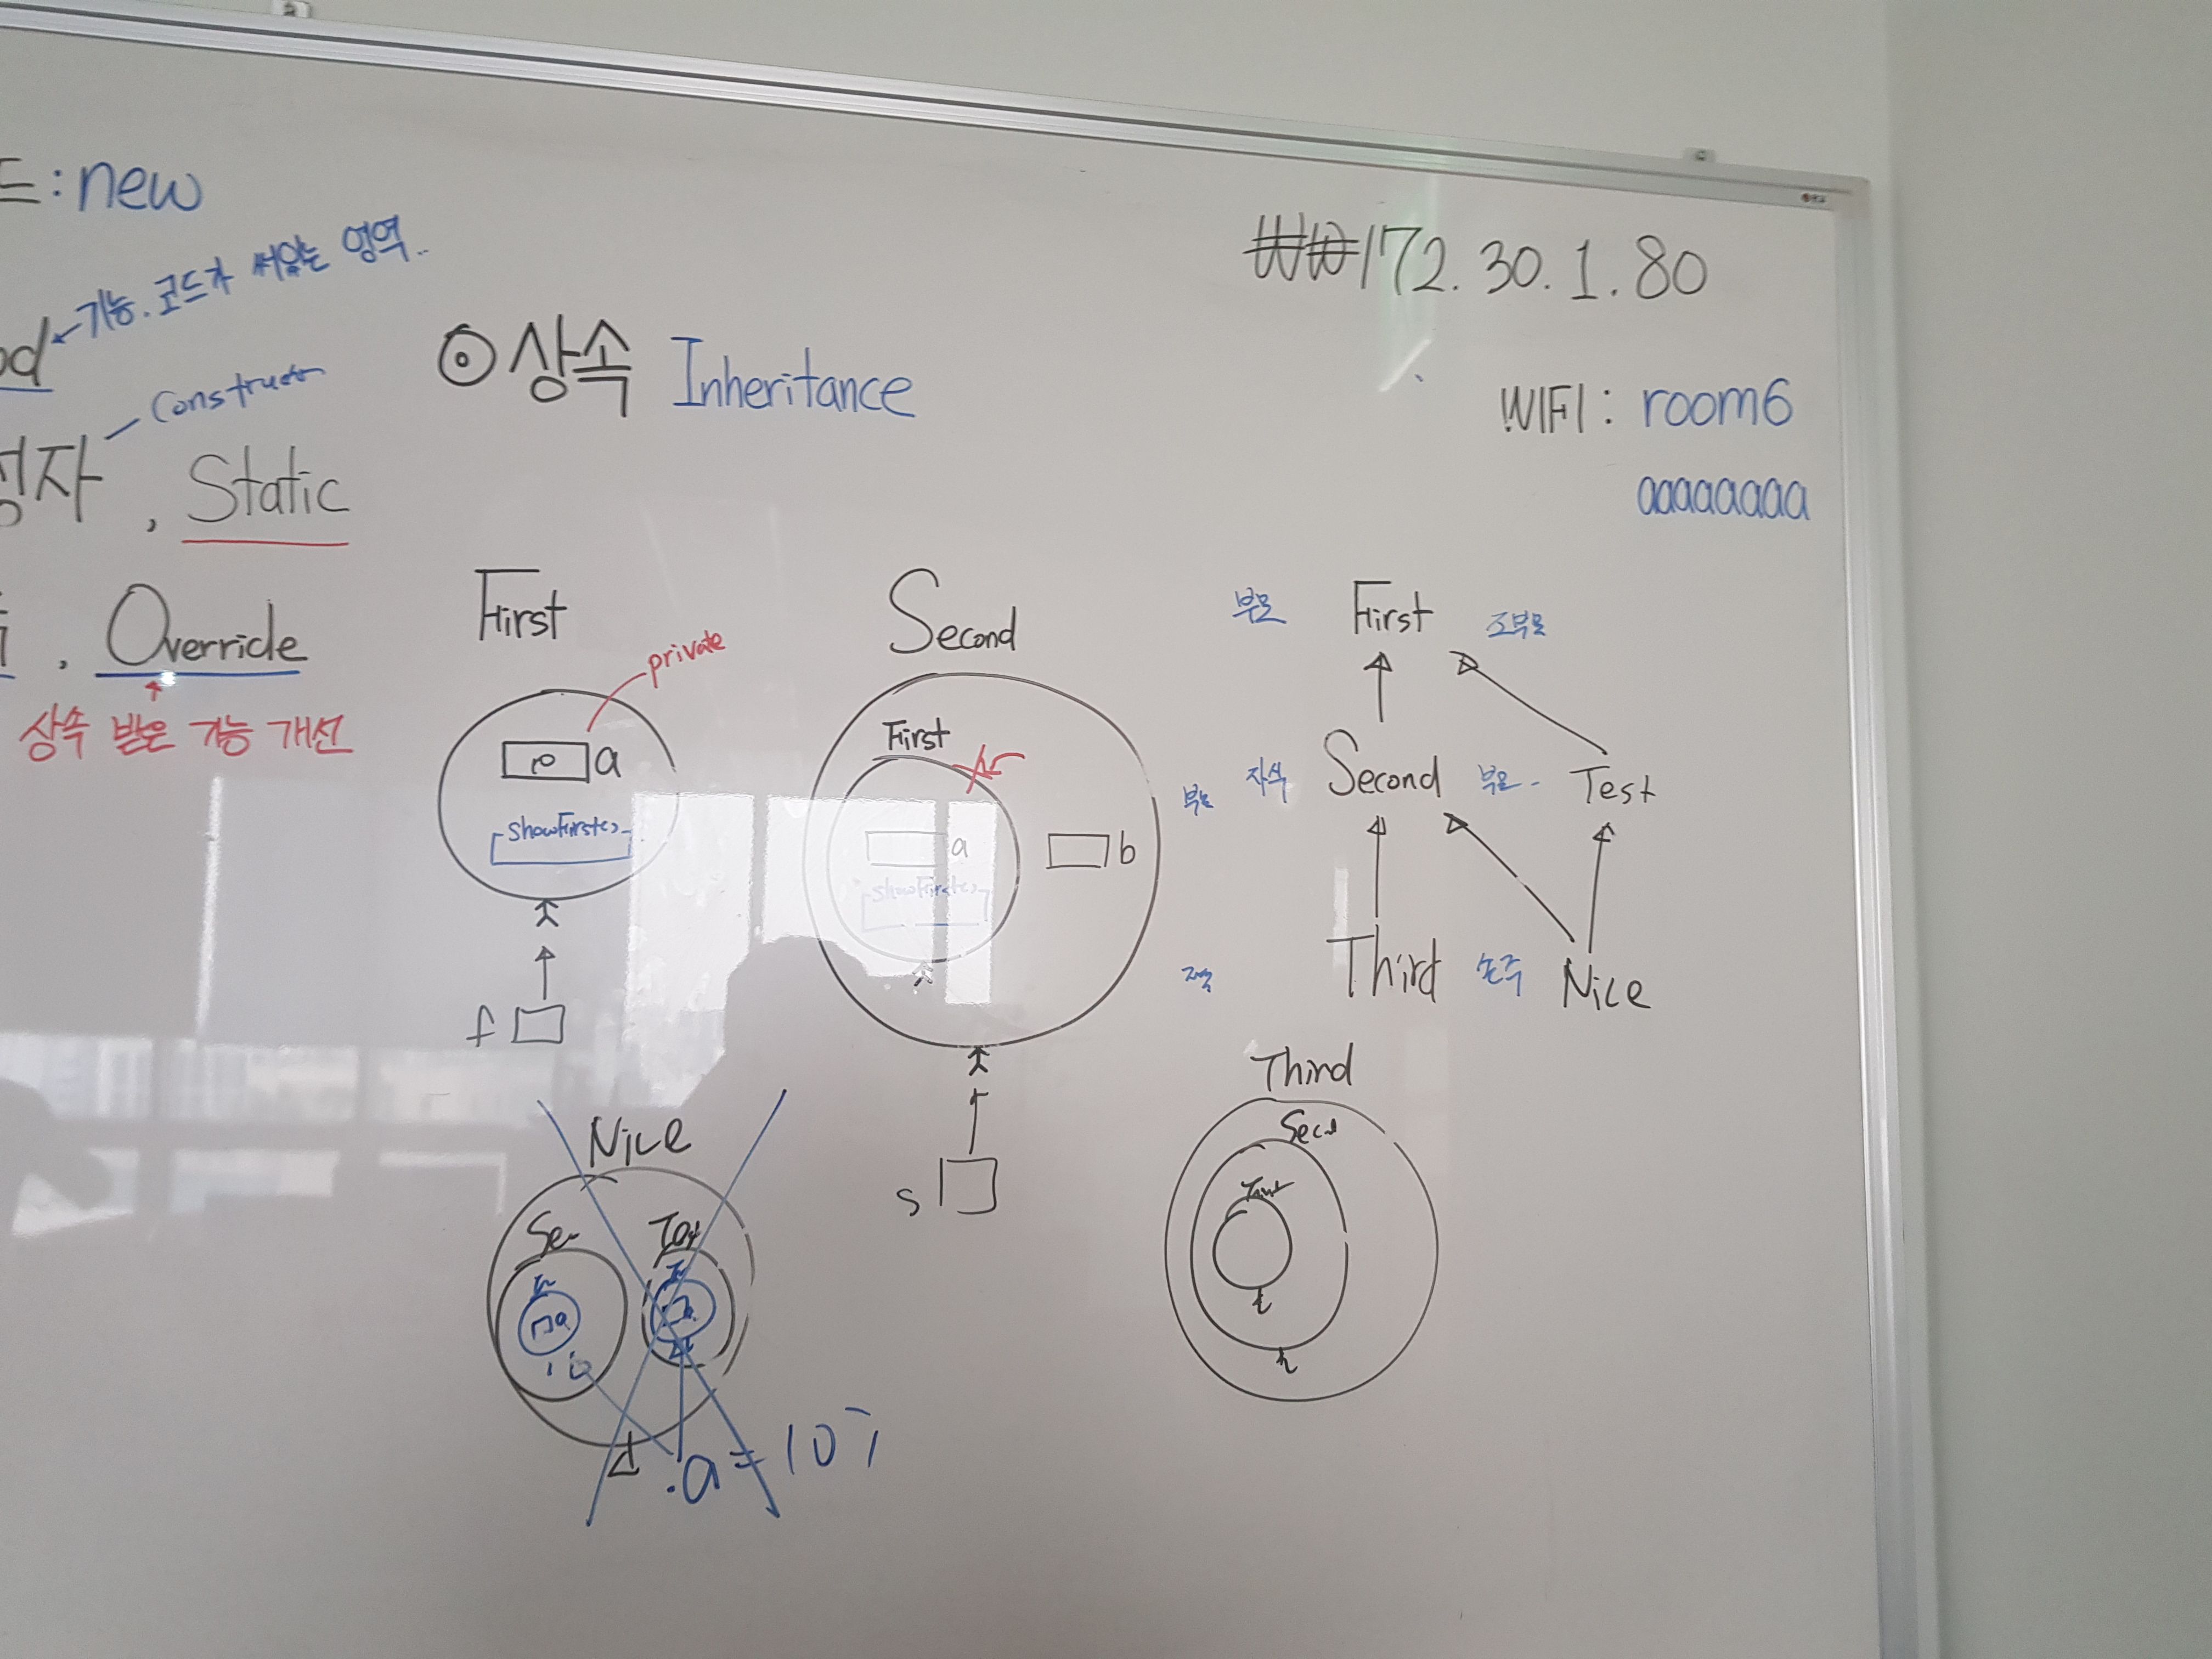 드:new
←기능. 코드가 써있는 영역..
od
성자, Static
, Override
상속 받은 기능 개선
⊙상속 Inheritance
₩₩172.30.1.80
WIFI: room6
aaaaaaaa
First
private
a
showFirst()
f
Second
First
a
showFirst()
b
s
부모 First 조부모
부모 자식 Second 부모 Test
자식 Third 손주 Nice
Nice
Se
a
.a=10;
Third